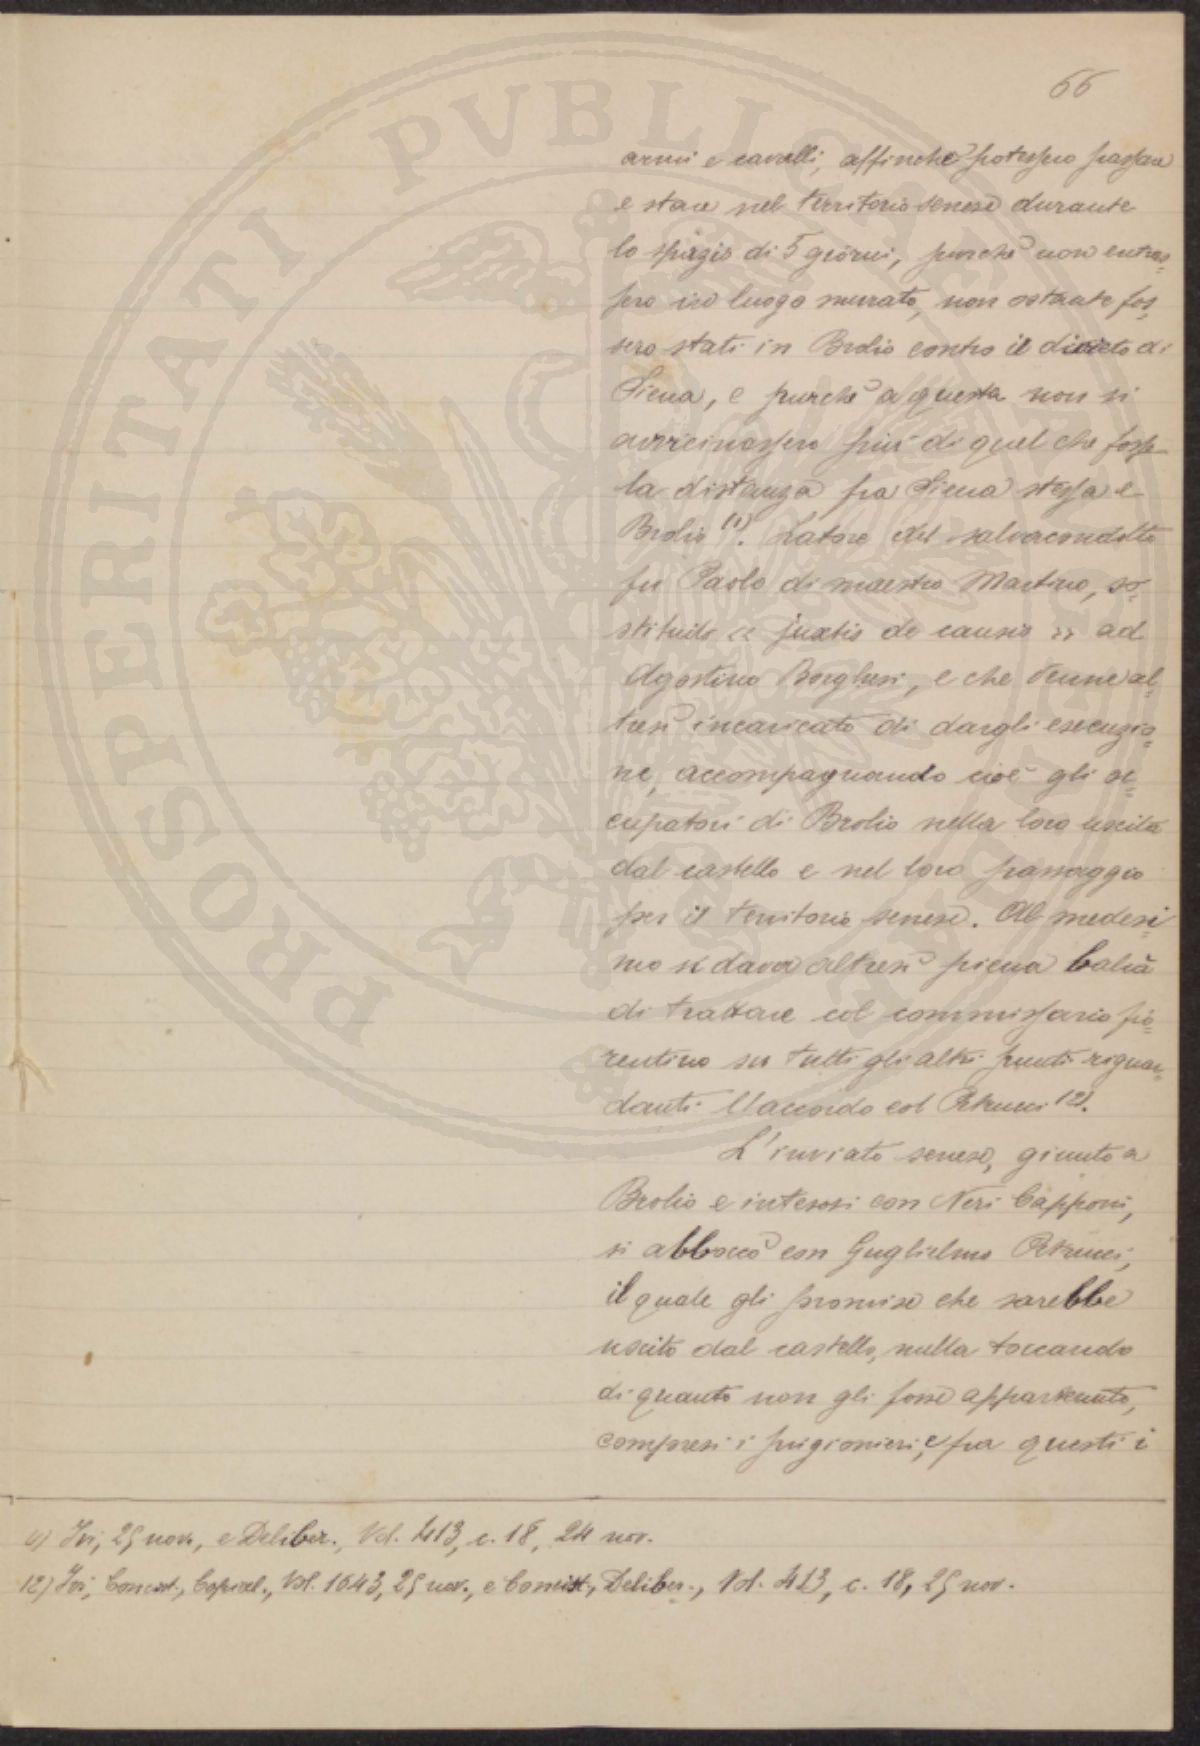 66
armi e cavalli, affinchè potessero passare
e stare nel territorio senese durante
lo spazio di 5 giorni, purchè non entras=
sero in luogo murato, non ostante fos=
sero stati in Brolio contro il divieto di
Siena, e purchè a questa non si
avvicinassero più di quel che fosse
la distanza fra Siena stessa e
Brolio (1). Latore del salvacondotto
fu Paolo di maestro Martino, so=
stituito « justis de causis » ad
Agostino Borghesi, e che venne al=
tresì incaricato di dargli esecuzio=
ne, accompagnando cioè gli oc=
cupatori di Brolio nella loro uscita
dal castello e nel loro passaggio
per il territorio senese. Al medesi=
mo si dava altresì piena balìa
di trattare col commissario fio=
rentino su tutti gli altri punti riguar=
danti l'accordo col Petrucci (2).
L'inviato senese, giunto a
Brolio e intesosi con Neri Capponi,
si abboccò con Guglielmo Petrucci,
il quale gli promise che sarebbe
uscito dal castello, nulla toccando
di quanto non gli fosse appartenuto,
compresi i prigionieri, e fra questi i
(1) Ivi, 25 nov., e Deliber., Vol. 413, c. 18, 24 nov.
(2) Ivi, Concist., Copial., Vol. 1643, 25 nov., e Concist., Deliber., Vol. 413, c. 18, 25 nov.
PROSPERITATI PVBLICAE